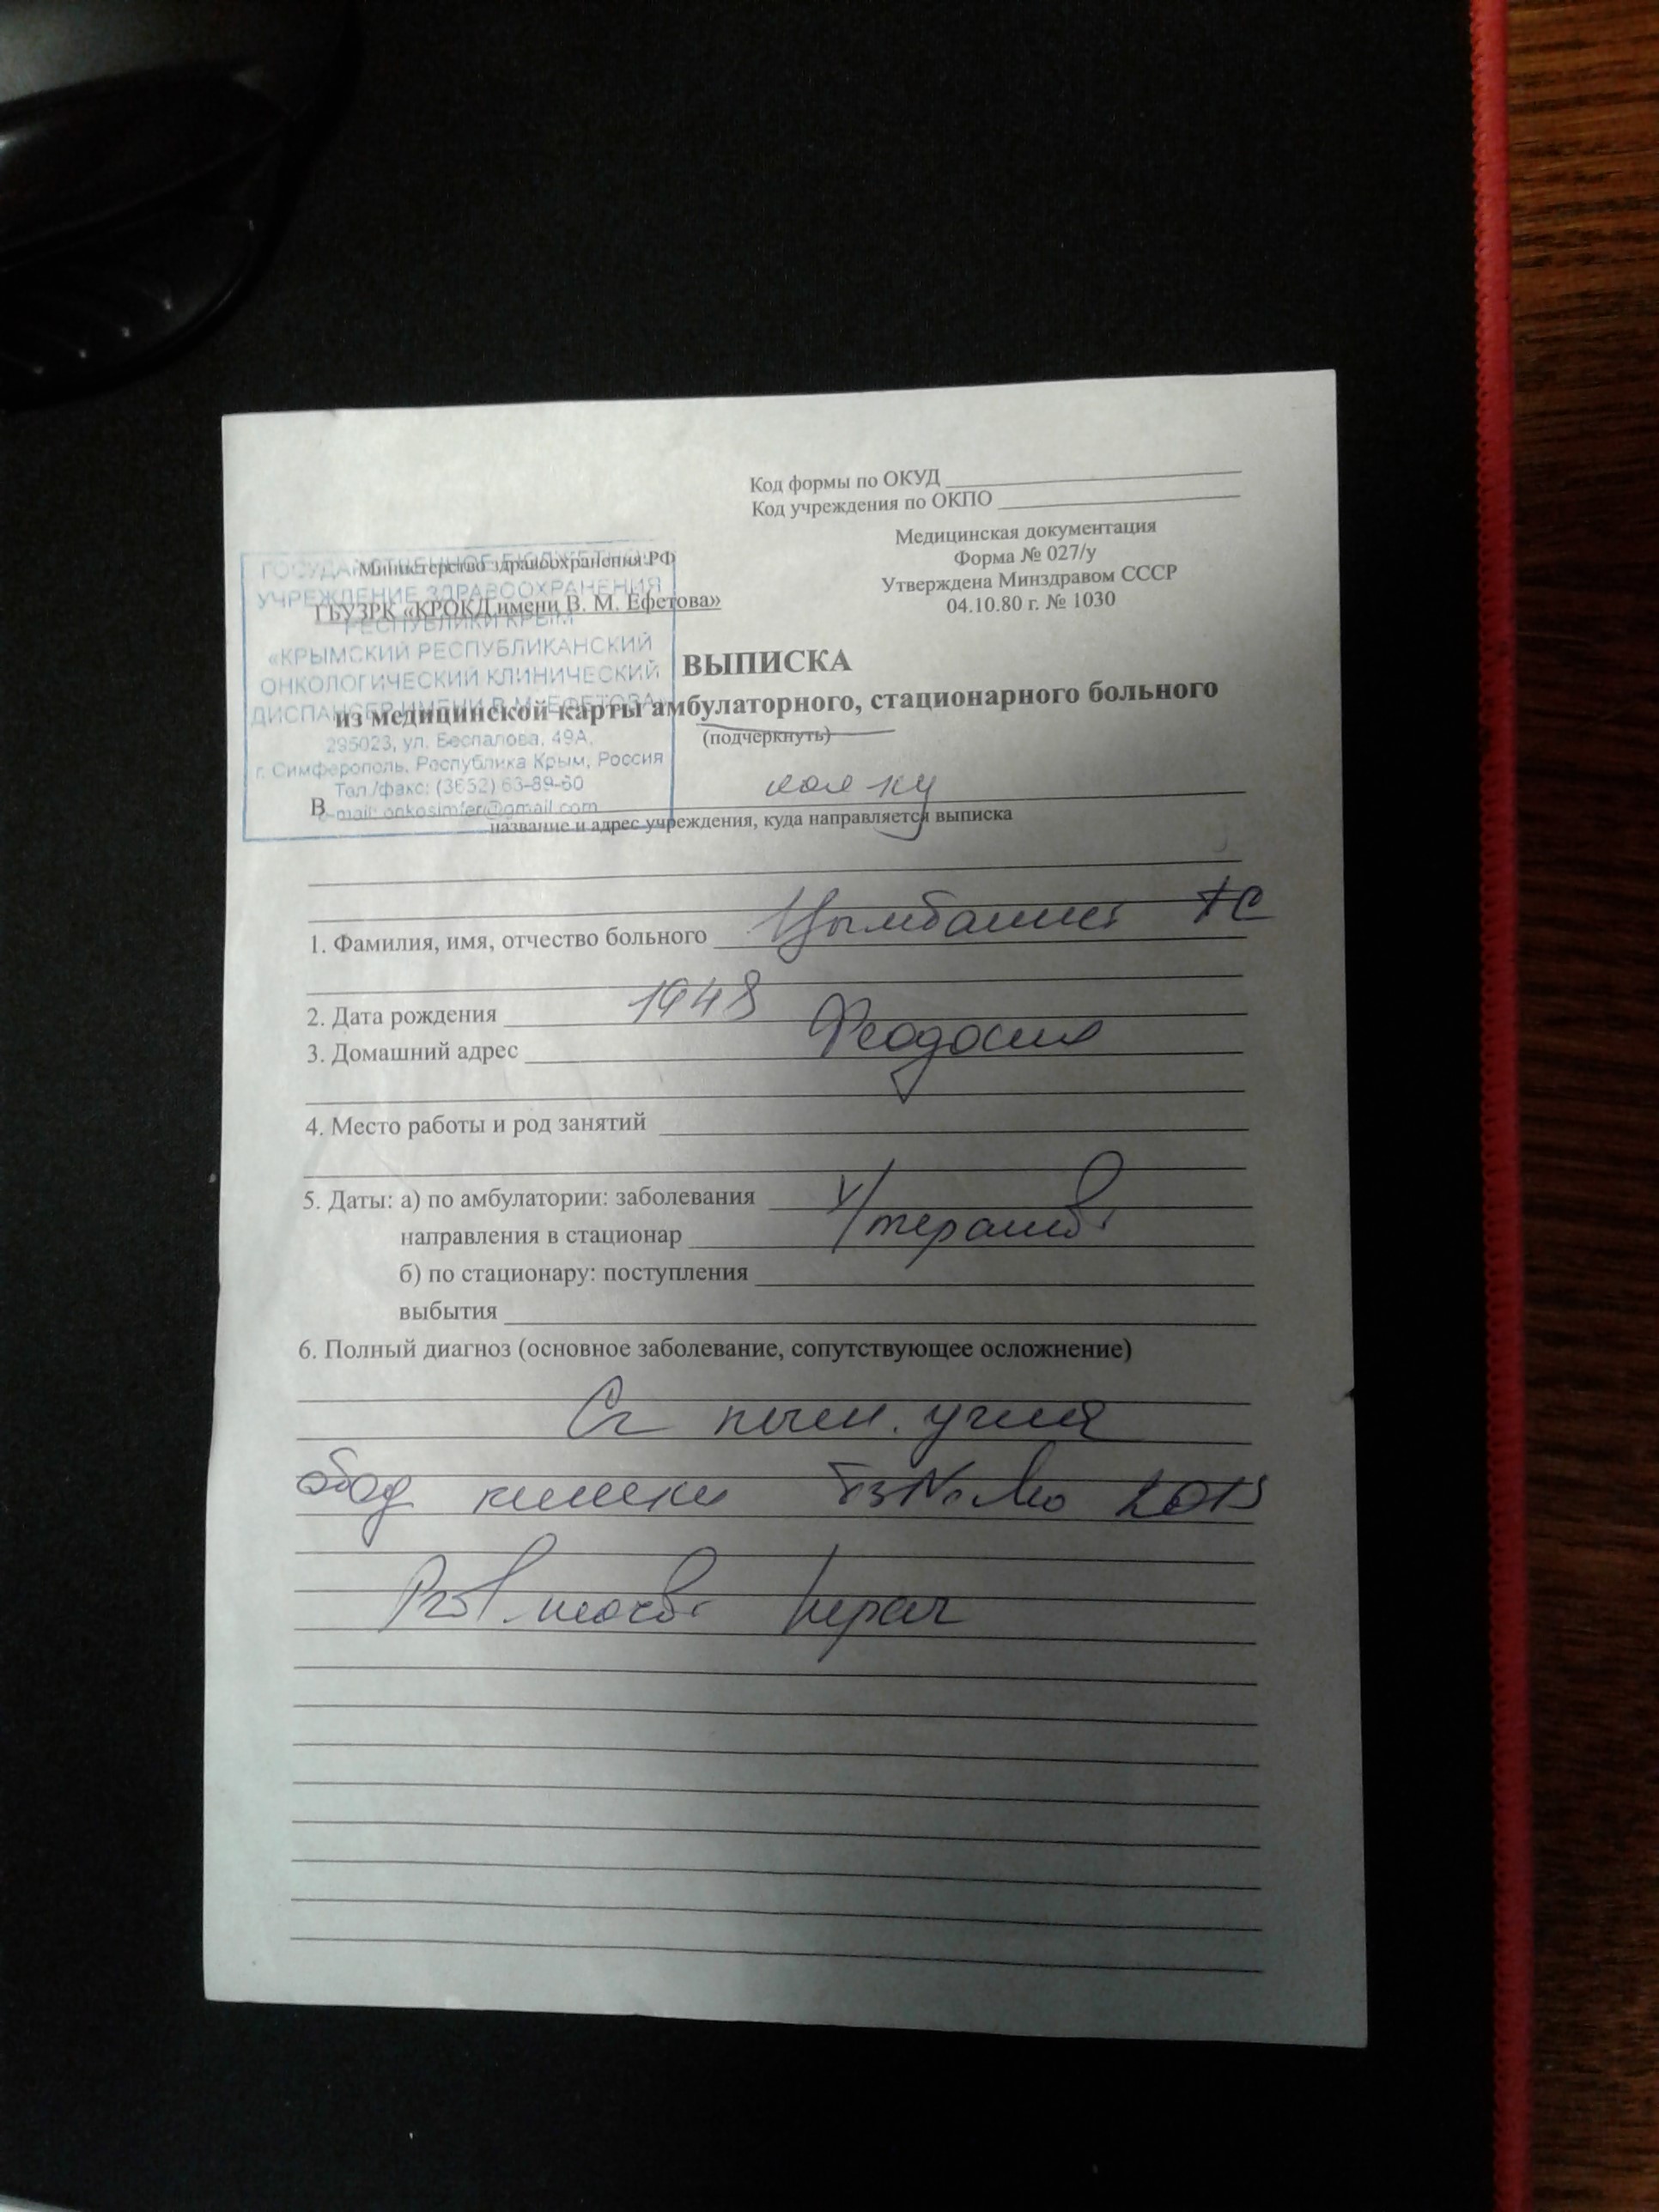 Код формы по ОКУД
Код учреждения по ОКПО
Медицинская документация
Форма № 027/у
Утверждена Минздравом СССР
04.10.80 г. № 1030
Министерство здравоохранения РФ
ГБУЗРК «КРОКД имени В. М. Ефетова»
ГОСУДАРСТВЕННОЕ БЮДЖЕТНОЕ
УЧРЕЖДЕНИЕ ЗДРАВООХРАНЕНИЯ
РЕСПУБЛИКИ КРЫМ
«КРЫМСКИЙ РЕСПУБЛИКАНСКИЙ
ОНКОЛОГИЧЕСКИЙ КЛИНИЧЕСКИЙ
ДИСПАНСЕР ИМЕНИ В.М. ЕФЕТОВА»
295023, ул. Беспалова, 49А,
г. Симферополь, Республика Крым, Россия
Тел./факс: (3652) 63-89-60
e-mail: onkosimfer@gmail.com
ВЫПИСКА
из медицинской карты амбулаторного, стационарного больного
(подчеркнуть)
В
название и адрес учреждения, куда направляется выписка
1. Фамилия, имя, отчество больного
2. Дата рождения 1948
3. Домашний адрес Феодосия
4. Место работы и род занятий
5. Даты: а) по амбулатории: заболевания
направления в стационар
б) по стационару: поступления
выбытия
6. Полный диагноз (основное заболевание, сопутствующее осложнение)
Cr печен. угла
обод кишки